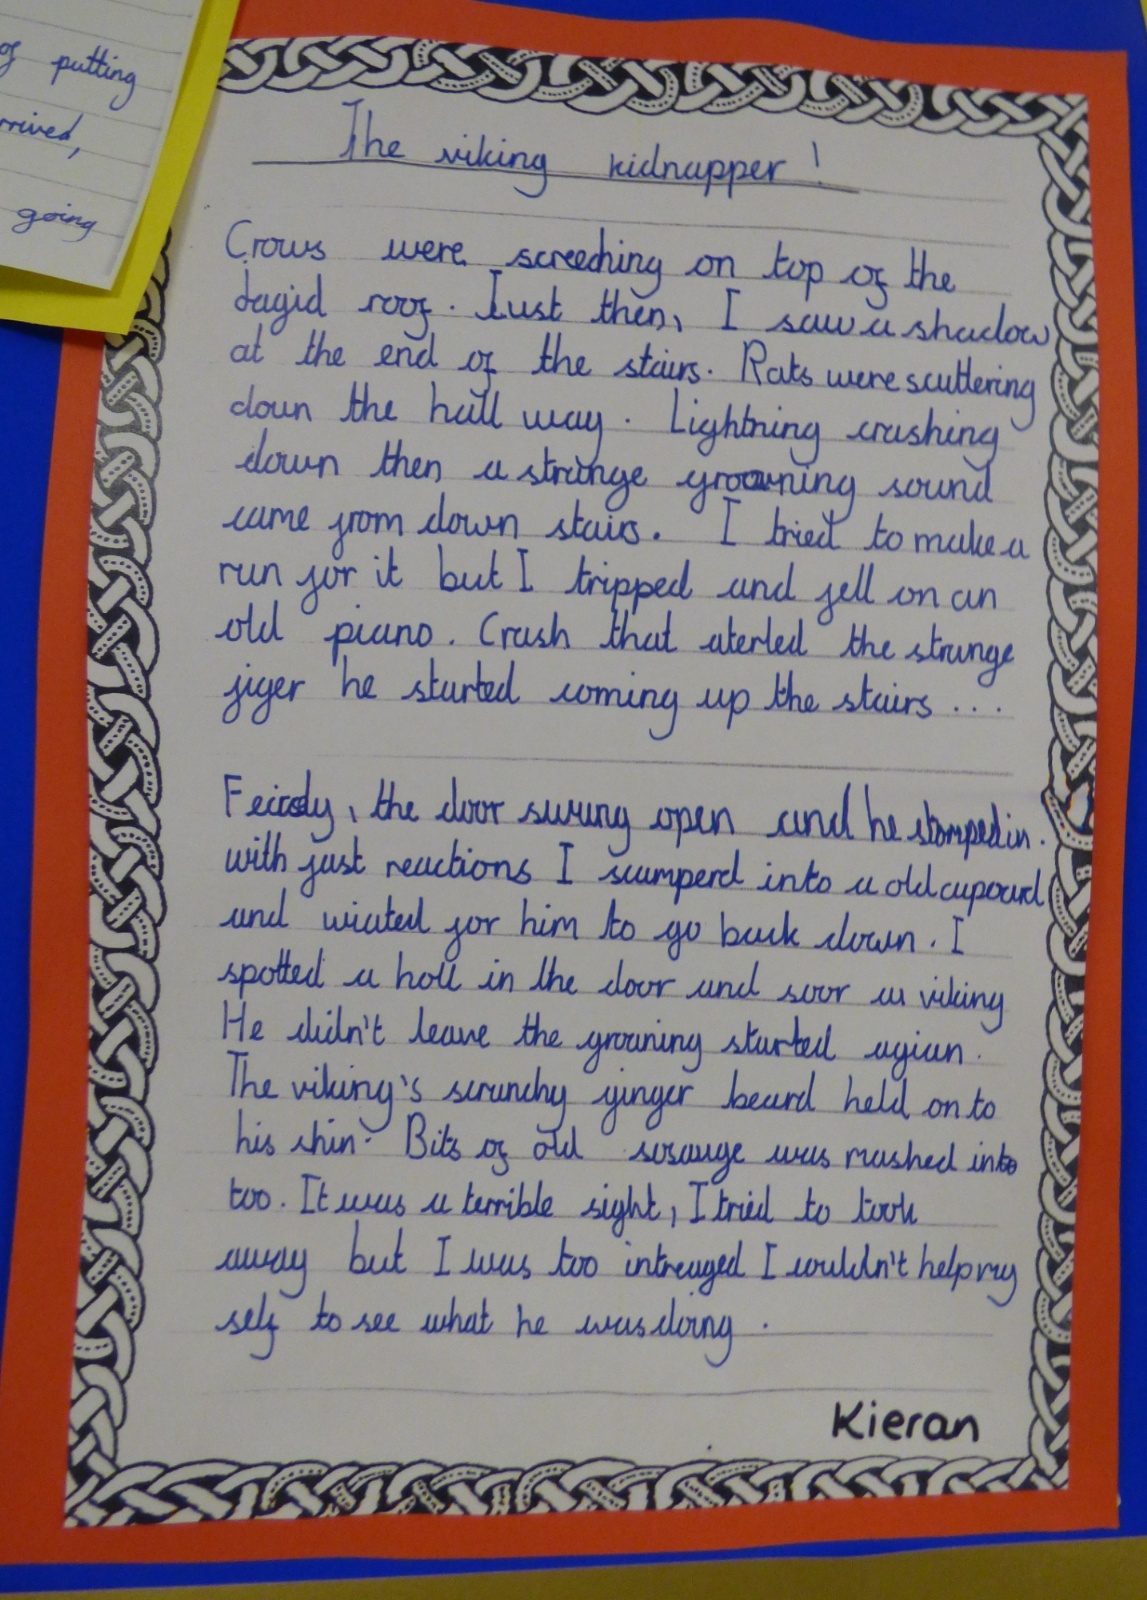 of putting
rrived,
going
The viking kidnapper!
Crows were screeching on top of the
jagid roof. Just then, I saw a shadow
at the end of the stairs. Rats were scuttering
down the hall way. Lightning crashing
down then a strange groaning sound
came from down stairs. I tried to make a
run for it but I tripped and fell on an
old piano. Crash that aterled the strange
figer he started coming up the stairs ...
the door swung open and he stomped in.
with fast reactions I scamperd into a old cupoard
and wiated for him to go back down. I
spotted a holl in the door and soor a viking
He didn't leave the groaning started agian.
The viking's scrunchy ginger beard held on to
his chin. Bits of old sosauge was mashed into
too. It was a terrible sight, I tried to took
away but I was too intreaged I couldn't help my
self to see what he was doing.
Kieran